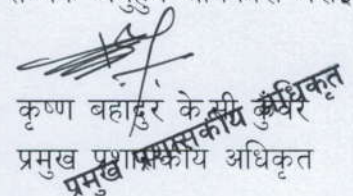 कृष्ण बहादुर के.सी. कुँवर
प्रमुख प्रशासकीय अधिकृत
प्रमुख प्रशासकीय अधिकृत